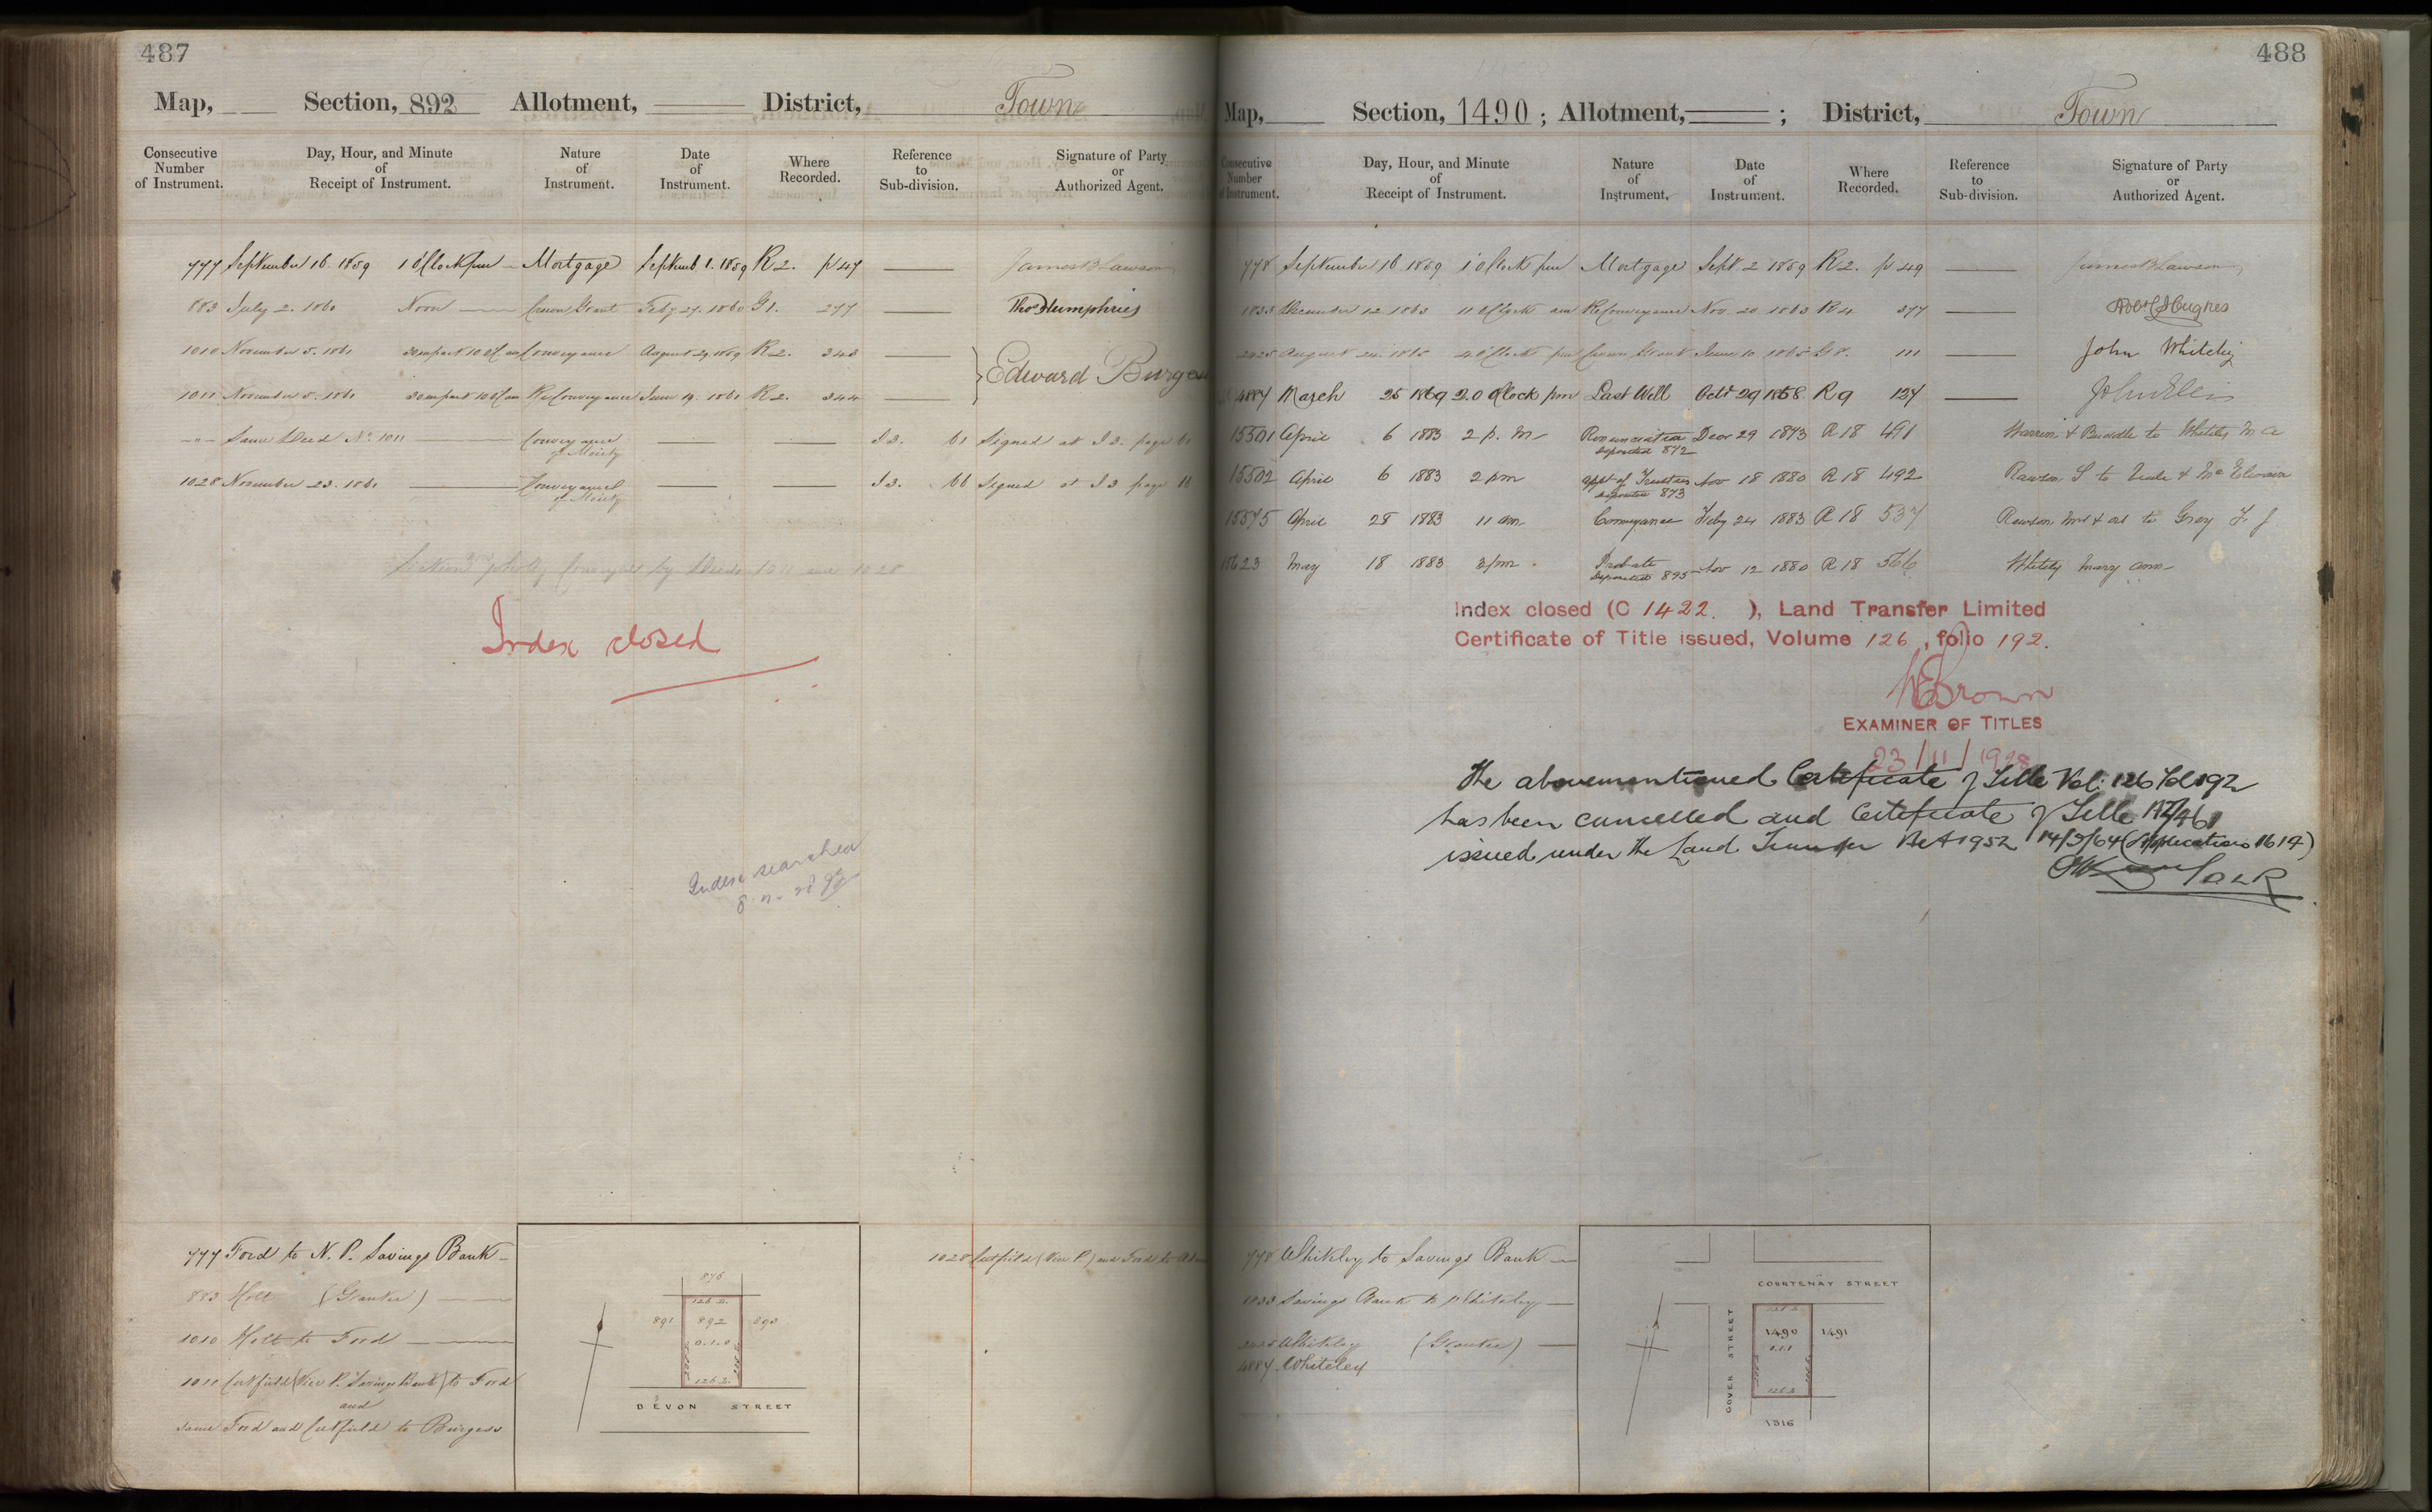 487
Map, Section, 892 Allotment, District, Town
Consecutive Number of Instrument. Day, Hour, and Minute of Receipt of Instrument. Nature of Instrument. Date of Instrument. Where Recorded. Reference to Sub-division. Signature of Party or Authorized Agent.
777 September 16. 1859 1 O'Clock pm Mortgage Septemb 1. 1859 R 2. p 47 James B Lawson
883 July 2. 1860 Noon Crown Grant Feby 27. 1860 G 1. 277 Thos Humphries
1010 November 5. 1861 Conveyance August 29. 1859 R 2. 343 Edward Burgess
1011 November 5. 1861 ReConveyance June 19. 1861 R 2. 344
-"- Same Deed No 1011 Conveyance of Moiety I 3. 61 Signed at I 3. page 61
1028 November 23. 1861 Conveyance of Moiety I 3. 66 Signed at I 3 page
Section wholly Conveyed by Deeds 1011 and 1028
Index closed
Index searched
777 Ford to N. P. Savings Bank
883 Holt (Grantee)
1010 Holt to Ford
1011 Cutfield (Vice P. Savings Bank) to Ford
and
same Ford and Cutfield to Burgess
876
126 L.
891 892 893
0.1.0
126 L.
DEVON STREET
1028 Cutfield (Vice P.) and Ford to
488
Map, Section, 1490 ; Allotment, ; District, Town
Consecutive Number of Instrument. Day, Hour, and Minute of Receipt of Instrument. Nature of Instrument. Date of Instrument. Where Recorded. Reference to Sub-division. Signature of Party or Authorized Agent.
778 September 16 1859 1 O'Clock pm Mortgage Sept. 2 1859 R 2. p 49 James B Lawson
1833 December 12 1863 11 O'Clock am ReConveyance Nov. 20 1863 R 4 377 Robt C Hughes
2425 August 1865 4 O'Clock pm Crown Grant June 10 1865 G 8. 111 John Whiteley
4887 March 25 1869 2.0 Clock pm Last Will Octr 29 1868. R 9 137 John Ellis
15501 April 6 1883 2 p. m Renunciation Deposited 872 Decr 29 1873 R 18 491 to Whiteley M A
15502 April 6 1883 2 pm Appt of Trustees deposited 873 Nov 18 1880 R 18 492
15575 April 28 1883 11 am Conveyance Feby 24 1883 R 18 537 Rawson to Gray F J
15623 May 18 1883 3 pm Probate Deposited 895 Nov 12 1880 R 18 566 Whiteley Mary Ann
Index closed (C 1422. ), Land Transfer Limited
Certificate of Title issued, Volume 126, folio 192.
Brown
EXAMINER OF TITLES
23/11/1928
The abovementioned Certificate of Title Vol: 126 Fol 192
has been cancelled and Certificate of Title
issued under the Land Transfer Act 1952 (Application 11614)
778 Whiteley to Savings Bank
1833 Savings Bank to Whiteley
2425 Whiteley (Grantee)
4887 Whiteley
COURTENAY STREET
GOVER STREET
1490 1491
0.1.1
126 L
1316